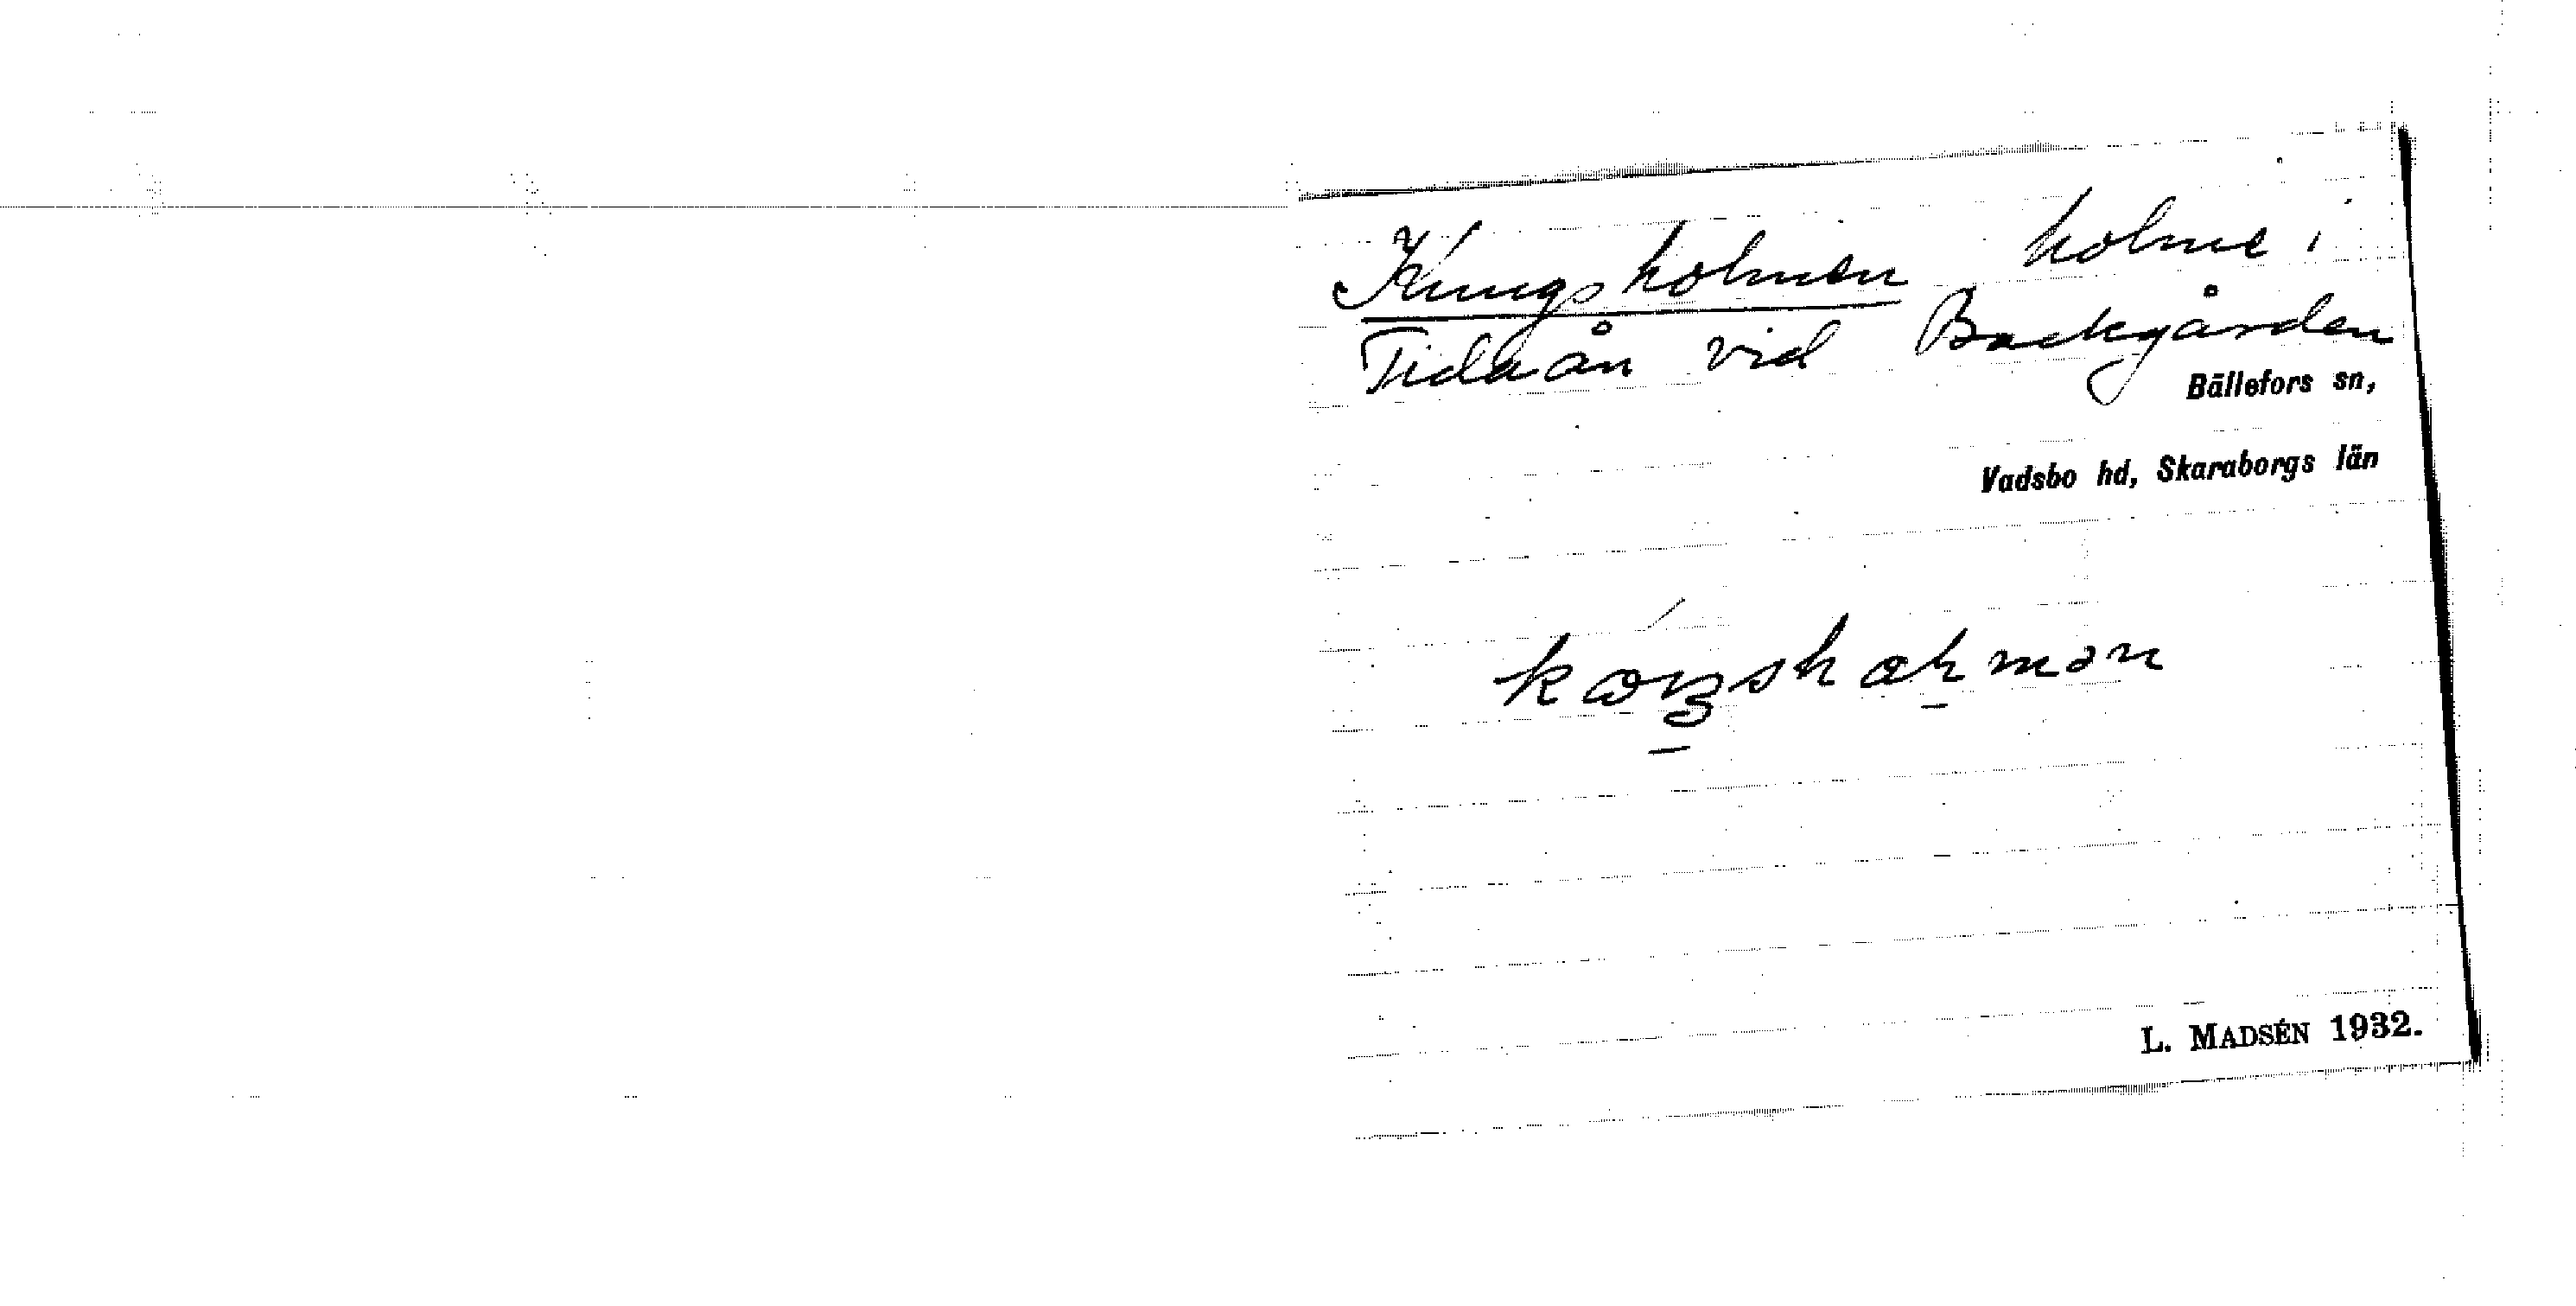 Kungsholmen holme i
Tidaån vid Backgården
Bällefors sn,
Vadsbo hd, Skaraborgs län
L. MADSÉN 1932.